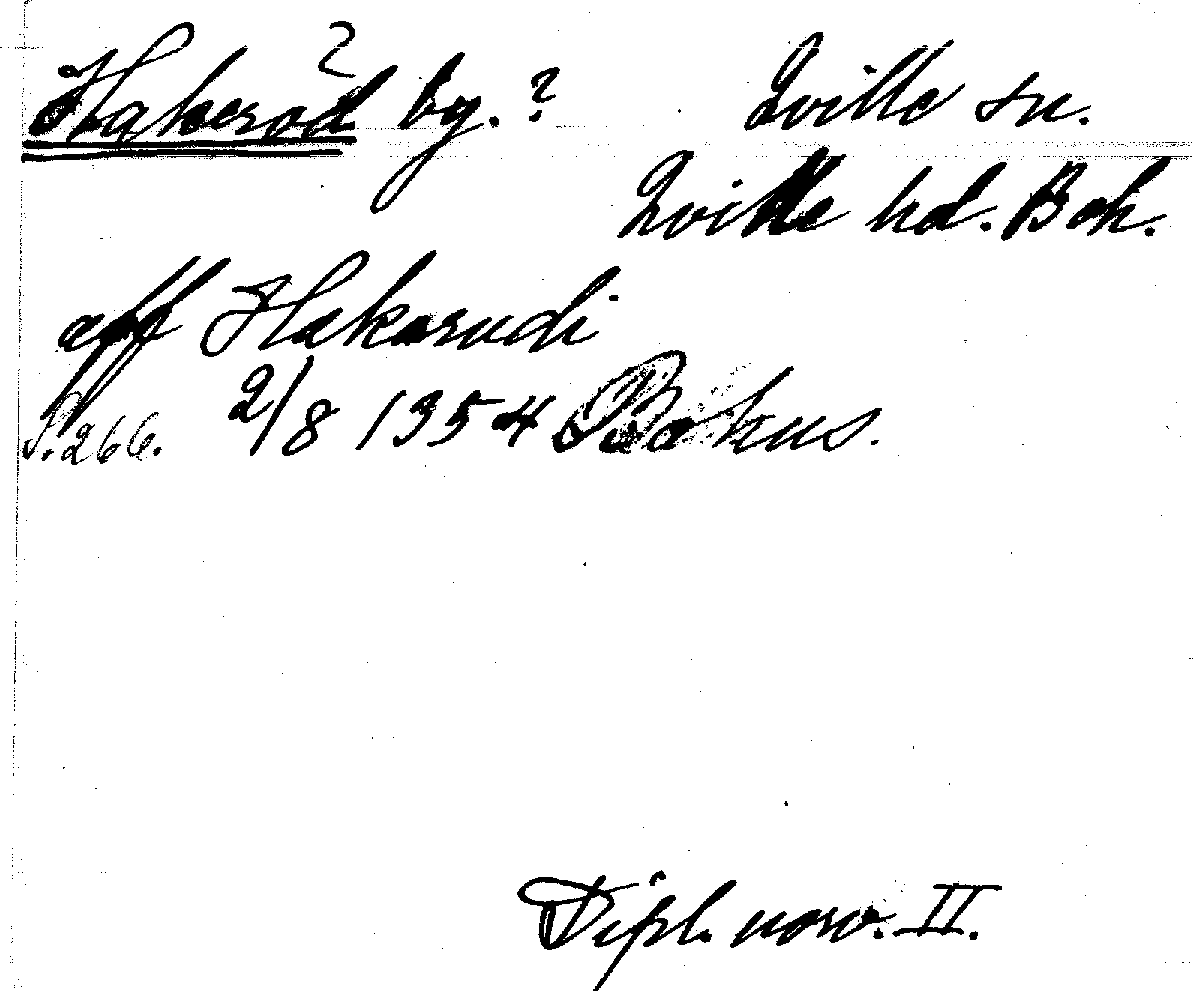 Hakeröd by. ? Qville sn.
?
Qville hd. Boh.
aff Hakarudi
S. 266. 2/8 1354 Bokus.
Dipl. norv. II.